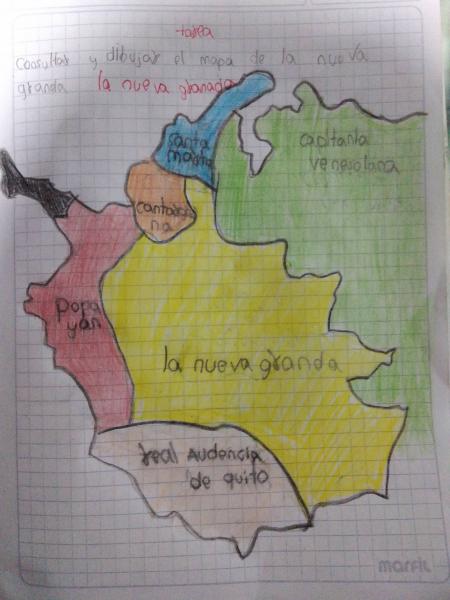 tarea
Consultar y dibujar el mapa de la nueva
granda la nueva granada
Santa
marta
capitanía
venezolana
cantage
na
popa
yán
la nueva granda
real Audencia
de quito
marfil